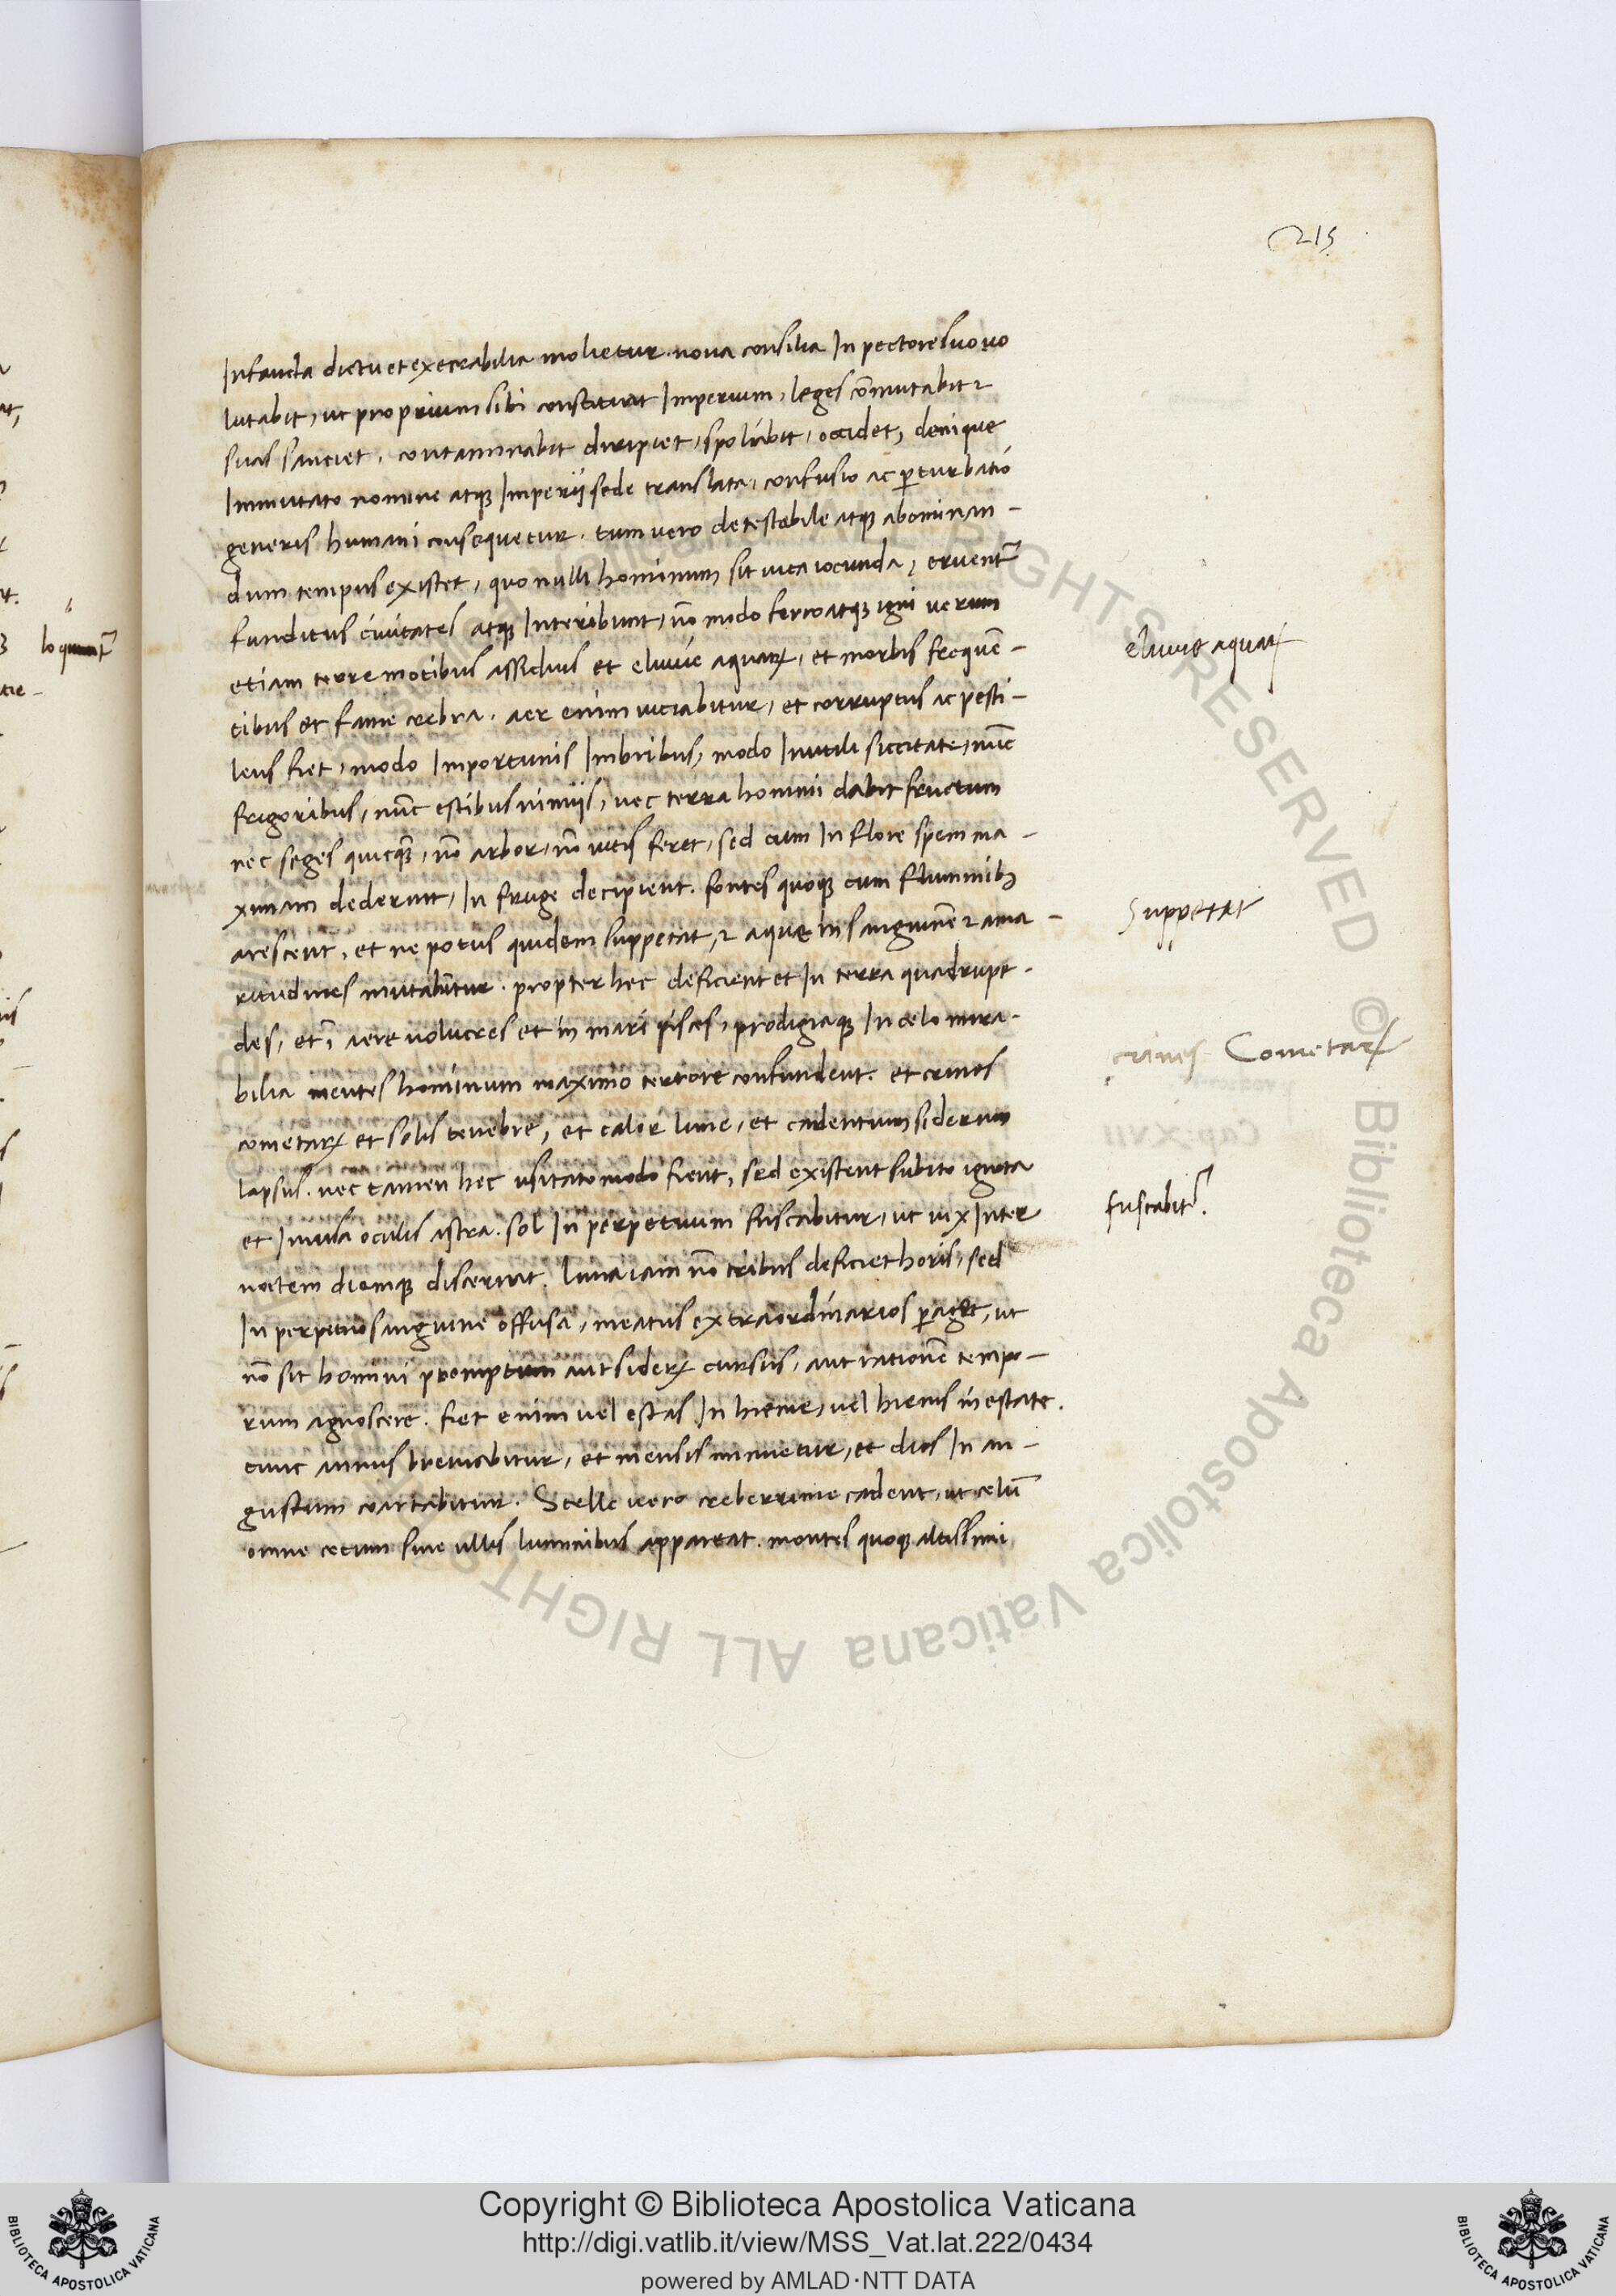 215
Infanda dictu et execrabilia molietur. nova consilia In pectore suo vo
lutabit, ut proprium sibi constituat Imperium, leges cōmutabit ⁊
suas sanciet, contaminabit diripiet, spoliabit, occidet, denique
Immutato nomine atqꝫ Imperij sede translata, confusio ac ꝑturbatio
generis humani consequetur. tum vero detestabile atqꝫ abominan-
dum tempus existet, quo nulli hominum sit vita iocunda, eruent᷑
funditus civitates atqꝫ Interibunt, nō modo ferro atqꝫ igni verum
etiam terre motibus assiduis et eluvie aquaꝝ, et morbis frequē-
tibus et fame crebra. aer enim viciabitur, et corruptus ac pesti-
lens fiet, modo Importunis Imbribus, modo Inutili siccitate, nūc
frigoribus, nūc estibus nimijs, nec terra homini dabit fructum
nec seges quicqꝫ, nō arbor, nō vitis feret, sed cum In flore spem ma-
ximam dederint, In fruge decipient. fontes quoqꝫ cum fluminibꝫ
arescent, et ne potus quidem suppetat, ⁊ aque In sanguinē ⁊ ama-
ritudines mutabūtur. propter hec deficient et In terra quadrupe-
des, et ī aere volucres et in mari pisces, prodigiaqꝫ In celo mira-
bilia mentes hominum maximo terrore confundent. et crines
cometaꝝ et solis tenebre, et calor lune, et cadentium siderum
lapsus. nec tamen hec usitato modo fient, sed existent subito ignota
et Invisa oculis astra. sol In perpetuum fuscabitur, ut vix Inter
noctem diemqꝫ discernat. luna iam nō tribus deficiet horis, sed
In perpetuo sanguine offusa, meatus extraordinarios ꝑaget, ut
nō sit homini promptum aut sideꝝ cursus, aut rationē tempo-
rum agnoscere. fiet enim vel estas In hieme, vel hiems in estate.
tunc annus breviabitur, et mensis minuetur, et dies In an-
gustum coartabitur. Stelle vero creberrime cadent, ut celū
omne cecum sine ullis luminibus appareat. montes quoqꝫ altissimi
eluvie aquaꝝ
Suppetat
crines Cometaꝝ
fuscabit᷑.
loquunt᷑
ALL RIGHTS RESERVED © Biblioteca Apostolica Vaticana
Copyright © Biblioteca Apostolica Vaticana
http://digi.vatlib.it/view/MSS_Vat.lat.222/0434
powered by AMLAD·NTT DATA
BIBLIOTECA APOSTOLICA VATICANA
BIBLIOTECA APOSTOLICA VATICANA